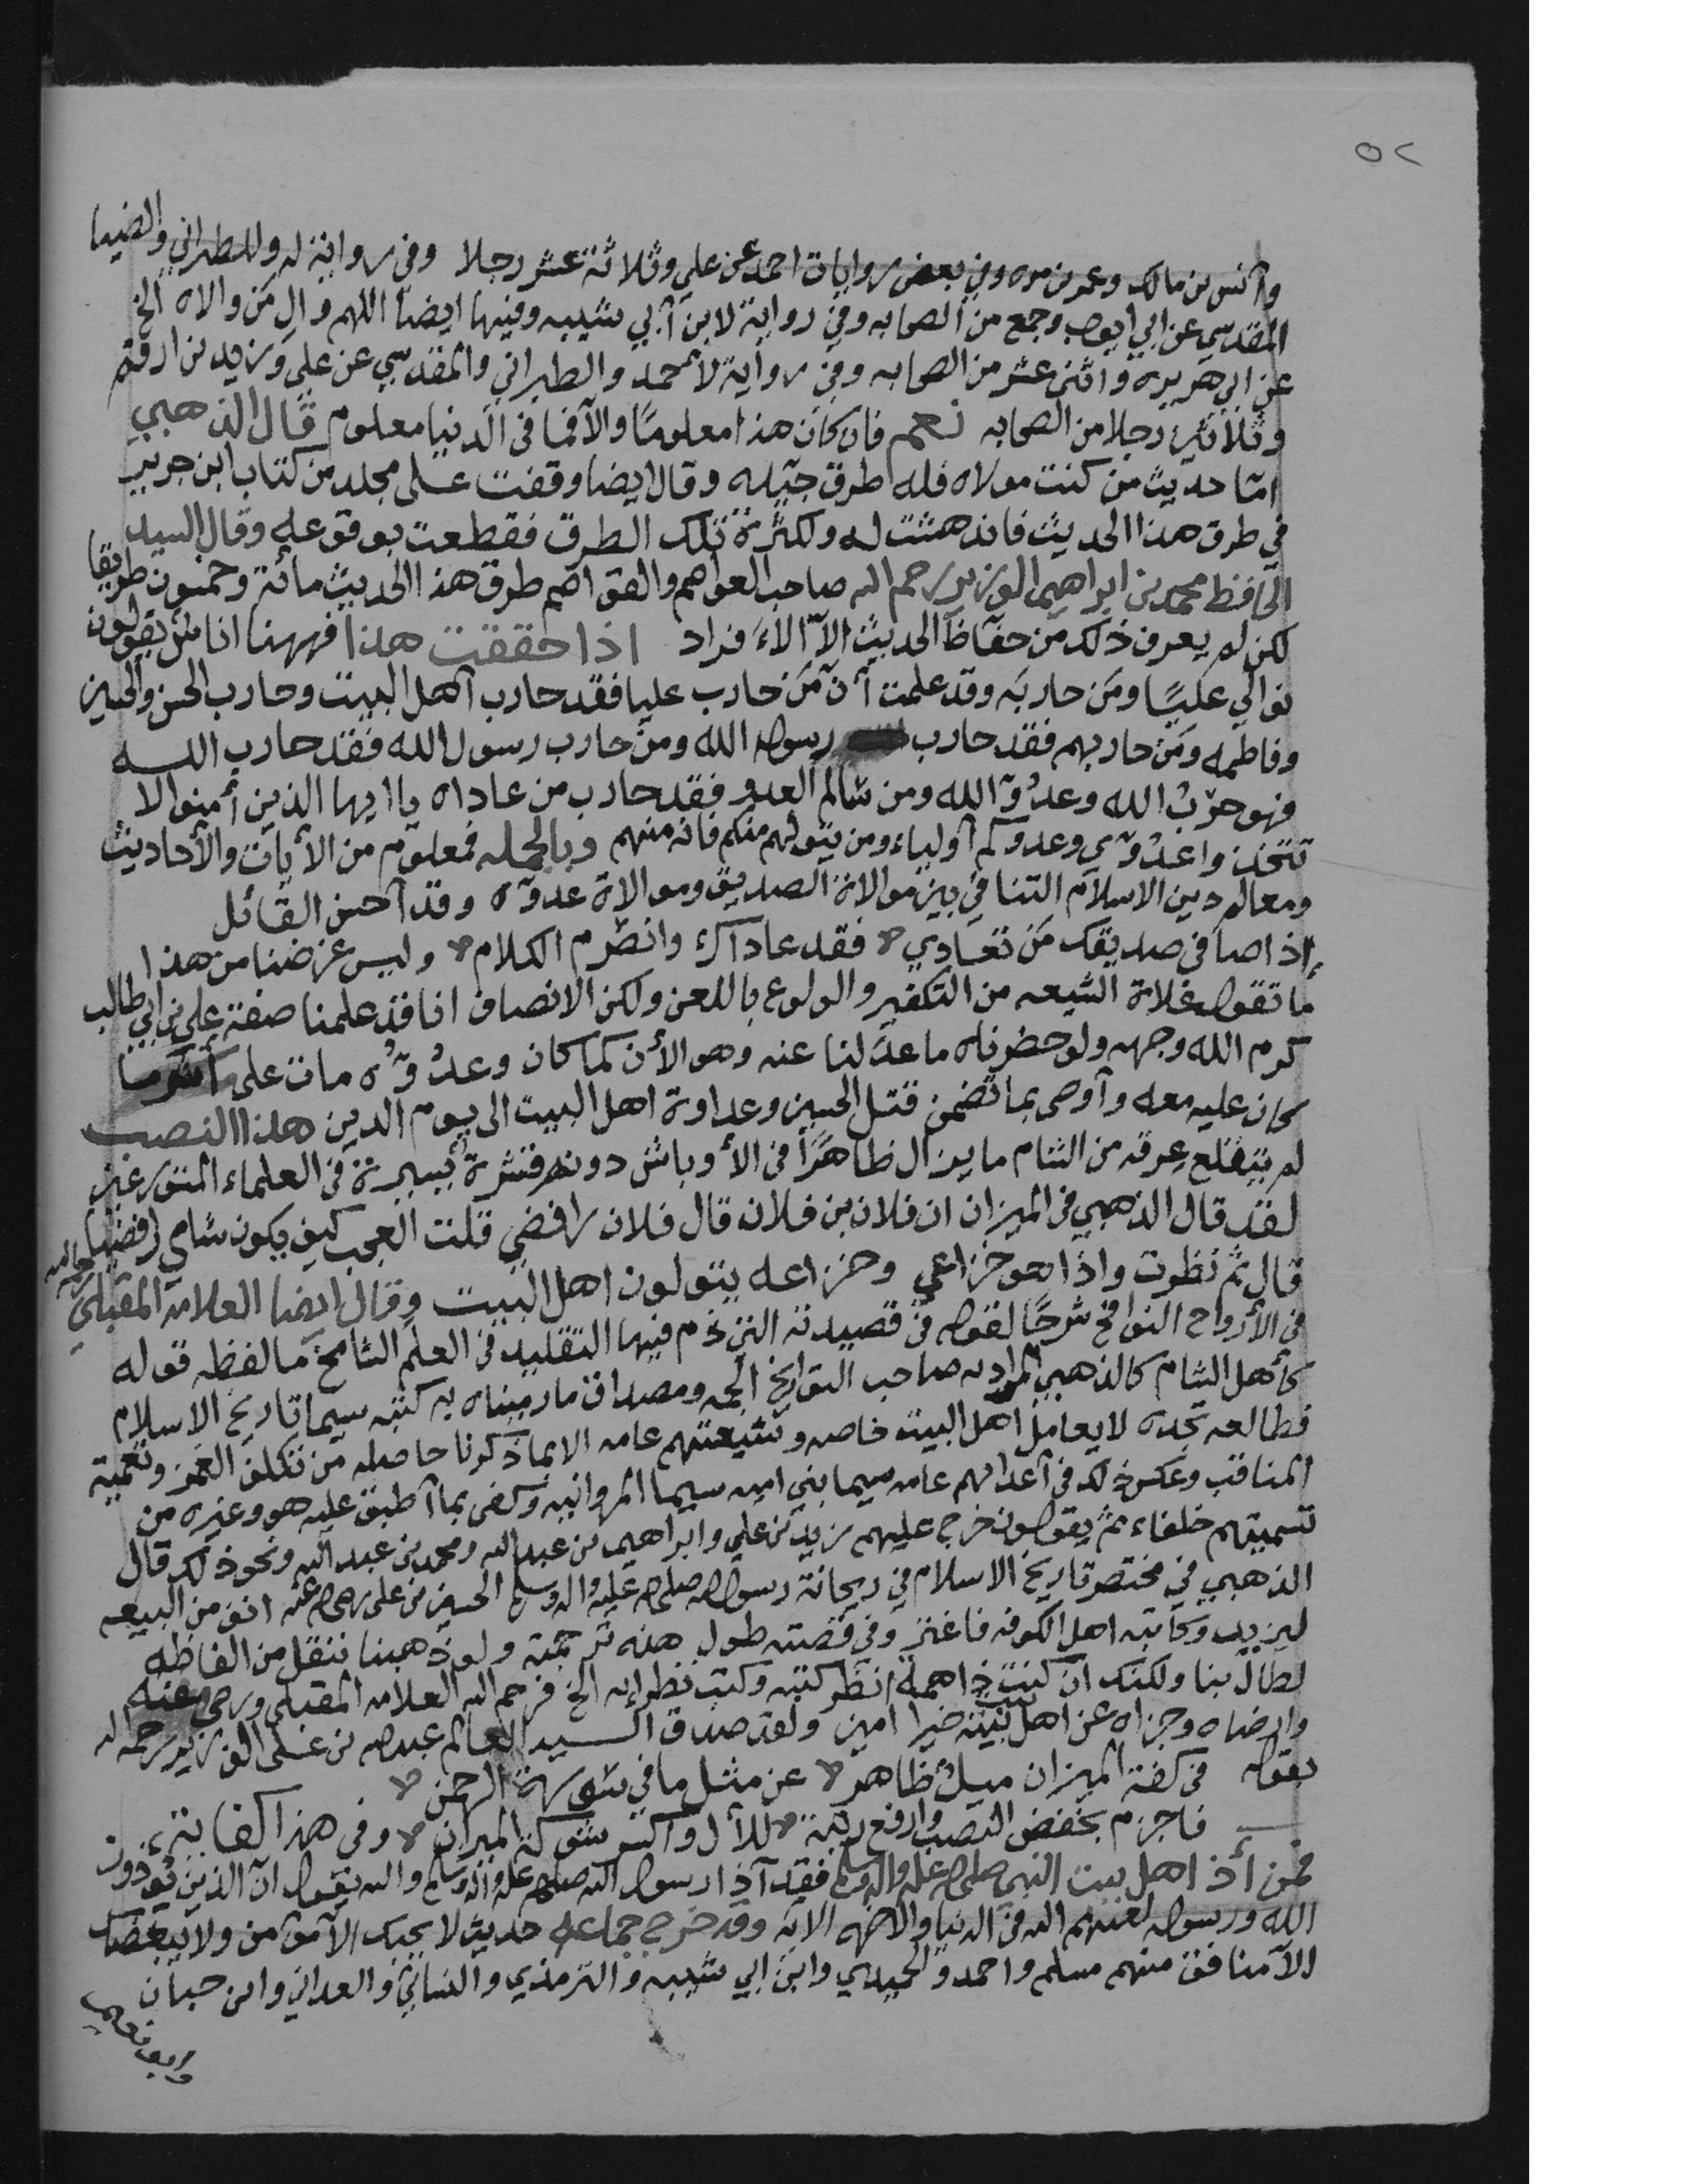 ٥٢
وانس بن مالك وعمر بن مره وفي بعض روايات احمد عن علي وثلاثة عشر رجلا وفي رواية له وللطبراني والضيا
المقدسي عن ابي ايوب وجمع من الصحابه وفي رواية لابن أبي شيبه وفيها ايضا اللهم وال من والاه الخ
عن ابي هريره واثنى عشر من الصحابه وفي رواية لأحمد والطبراني والمقدسي عن علي وزيد بن ارقم
وثلاثين رجلا من الصحابه نعم فان كان هذا معلومًا والآ فما في الدنيا معلوم قال الذهبي
امّا حديث من كنت مولاه فله طرق جيّله وقال ايضا وقفت على مجلد من كتاب ابن جرير
في طرق هذا الحديث فاندهشت له ولكثرة تلك الطرق فقطعت بوقوعه وقال السيد
الحافظ محمد بن ابراهيم الوزير رحمه الله صاحب العواصم والقواصم طرق هذا الحديث مائة وخمسون طريقا
لكن لم يعرف ذلك من حفاظ الحديث الآ الأفراد اذا حققت هذا فههنا اناس يقولون
نوالي عليًا ومن حاربه وقد علمت أن من حارب عليا فقد حارب اهل البيت وحارب الحسن والحسين
وفاطمه ومن حاربهم فقد حارب رسول الله ومن حارب رسول الله فقد حارب الله
فهو حرب الله وعدوّ الله ومن سالم العدو فقد حارب من عاداه ياايها الذين أمنوا لا
تتخذوا عدوّي وعدوكم أولياء ومن يتولهم منكم فانه منهم وبالجمله فمعلوم من الأيات والأحاديث
ومعالم دين الاسلام التنافي بين موالاة الصديق وموالاة عدوّه وقد آحسن القائل
إذا صافى صديقك من تعادي فقد عاداك وانصرم الكلام وليس غرضنا من هذا
ما تقوله غلاة الشيعه من التكفير والولوع باللعن ولكن الانصاف انا قد علمنا صفة علي بن ابي طالب
كرم الله وجهه ولو حضرناه ما عدَلنا عنه وهو الأن كما كان وعدُوّه مات على أشر ما
كان عليه معه وآوصى بما تضمن قتل الحسين وعداوة اهل البيت الى يوم الدين هذا النصب
لم يتقلع عرقه من الشام ما يزال ظاهرًا في الأوباش دونه قشرة يسيرة في العلماء المتورعين
لقد قال الذهبي في الميزان ان فلان بن فلان قال فلان رافضي قلت العجب كيف يكون شامي رافضيا
قال ثم نظرت واذا هو خزاعي وخزاعه يتولون اهل البيت وقال ايضا العلامة المقبلي رحمه الله
في الأرواح النوافخ شرحًا لقوله في قصيدته التي ذم فيها التقليد في العلم الشامخ ما لفظه قوله
كأهل الشام كالذهبي المراد به صاحب التواريخ الجمه ومصداق ما رميناه به كتبه سيما تاريخ الإسلام
فطالعه تجده لا يعامل اهل البيت خاصه وشيعتهم عامه الا بما ذكرنا حاصله من تكلف الغمز وتعمية
المناقب وعكس ذلك في أعدائهم عامه سيما بني اميه سيما المروانيه وكفى بما آطبق عليه هو وغيره من
تسميتهم خلفاء ثم يقولون خرج عليهم زيد بن علي وابراهيم بن عبدالله ومحمد بن عبدالله ونحو ذلك قال
الذهبي في مختصر تاريخ الاسلام في ريحانة رسول الله صلى الله عليه واله وسلم الحسين بن علي رضي الله عنه انف من البيعه
ليزيد وكاتبه اهل الكوفه فاغتر وفي قصته طول هذه ترجمته ولو ذهبنا ننقل من الفاظه
لطال بنا ولكنك ان كنت ذا همة انظر كتبه وكتب نظرايه الخ فرحم الله العلامه المقبلي ورضي عنه
وارضاه وجزاه عن اهل بيت نبيّه خيرا امين ولقد صدق السيد العالم عبدالله بن علي الوزير رحمه الله
بقوله في كفة الميزان ميلٌ ظاهر عن مثل ما في سورة الرحمن
فاجزم بخفض النصب وارفع رتبة للأل وآكسر شوكة الميزان وفي هذا كفاية
فمن أذا اهل بيت النبي صلى الله عليه واله وسلم فقد آذا رسول الله صلى الله عليه واله وسلم والله يقول آن الذين يؤذون
الله ورسوله لعنهم الله في الدنيا والاخره الايه وقد خرج جماعه حديث لا يحبك الآ مؤمن ولا يبغضك
الآ منافق منهم مسلم واحمد والحميدي وابن ابي شيبه والترمذي والنسائي والعدني وابن حبان
وابو نعيم